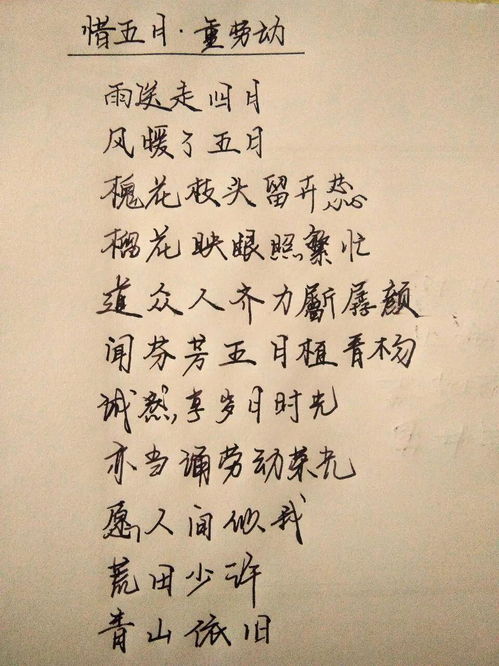 惜五月·重劳动
雨送走四月
风暖了五月
槐花枝头留卉
榴花映眼照繁忙
道众人齐力颜
闻芬芳五月植青杨
诚然,享岁月时光
亦当诵劳动荣光
愿人间似我
荒田少许
青山依旧